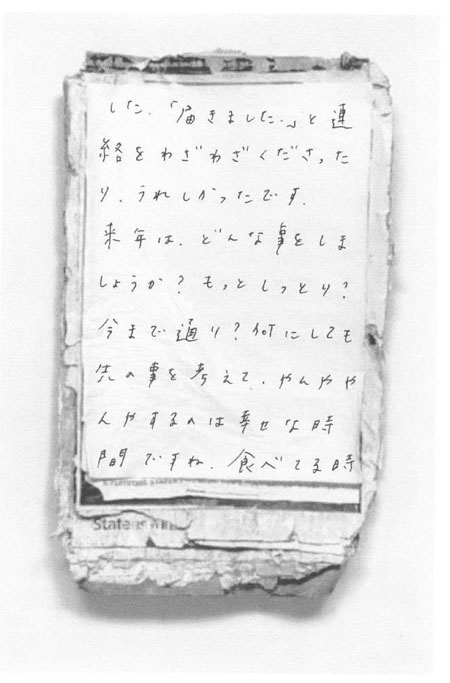 した.「届きました.」と連
絡をわざわざくださった
り、うれしかったです.
来年は、どんな事をしま
しょうか? もっとしっとり?
今まで通り? 何にしても
先の事を考えて、やんやや
んやするのは幸せな時
間ですね. 食べてる時
State is